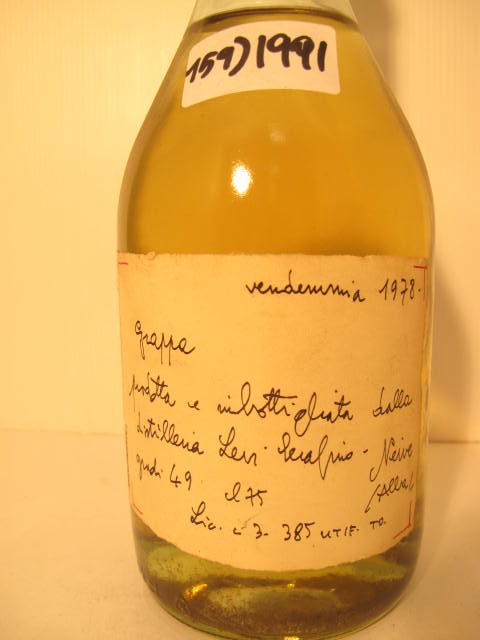 159) 1991
vendemmia 1978.
Grappa
prodotta e imbottigliata dalla
distilleria Levi Serafino - Neive
gradi 49 cl 75 (Alba)
Lic. n 3- 385 UTIF. TO.